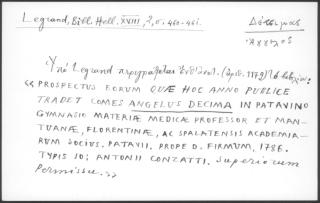 Legrand, Bibl. Hell. XVIII, 2, σ. 460-461.
Δέκιμας
Ἄγγελος
Ὑπὸ Legrand περιγράφεται (ἀριθ. 1179) τὸ βιβλίον:
« PROSPECTUS EORUM QUÆ HOC ANNO PUBLICE
TRADET COMES ANGELUS DECIMA IN PATAVINO
GYMNASIO MATERIÆ MEDICÆ PROFESSOR ET MAN-
TUANÆ, FLORENTINÆ, AC SPALATENSIS ACADEMIA-
RUM SOCIUS. PATAVII. PROPE D. FIRMUM, 1786.
TYPIS IO; ANTONII CONZATTI. Superiorum
Permissu. »